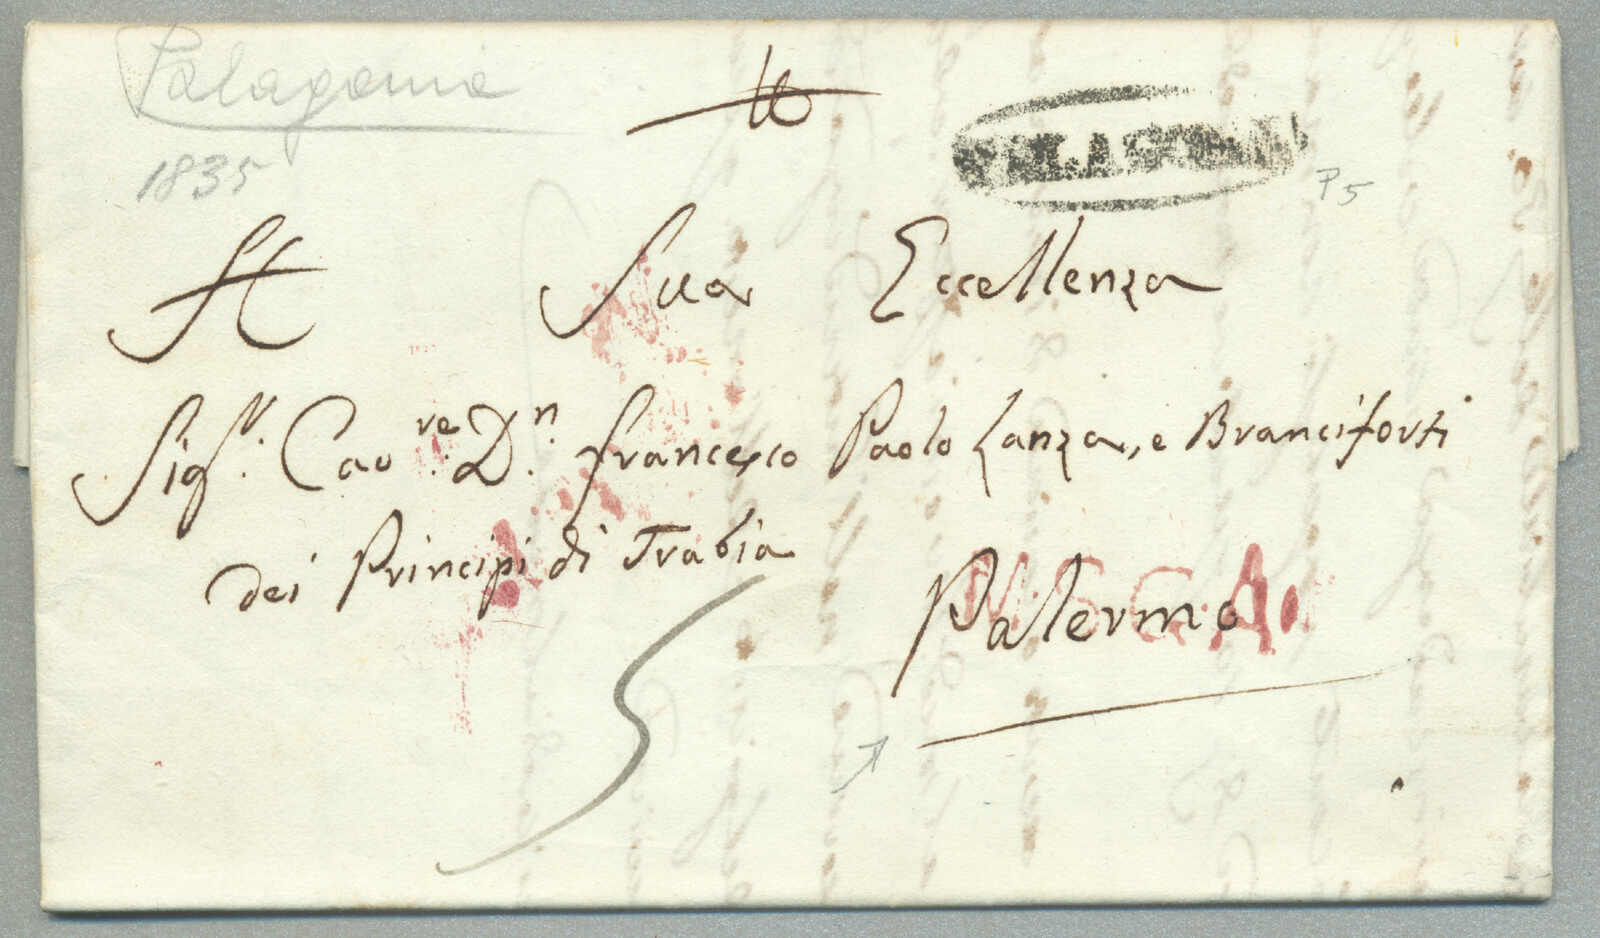 Palagonia
PALAGONIA
1835
P5
A Sua Eccellenza
Sigr. Cavre. Dn. Francesco Paolo Lanza, e Branciforti
dei Principi di Trabia
Palermo
5